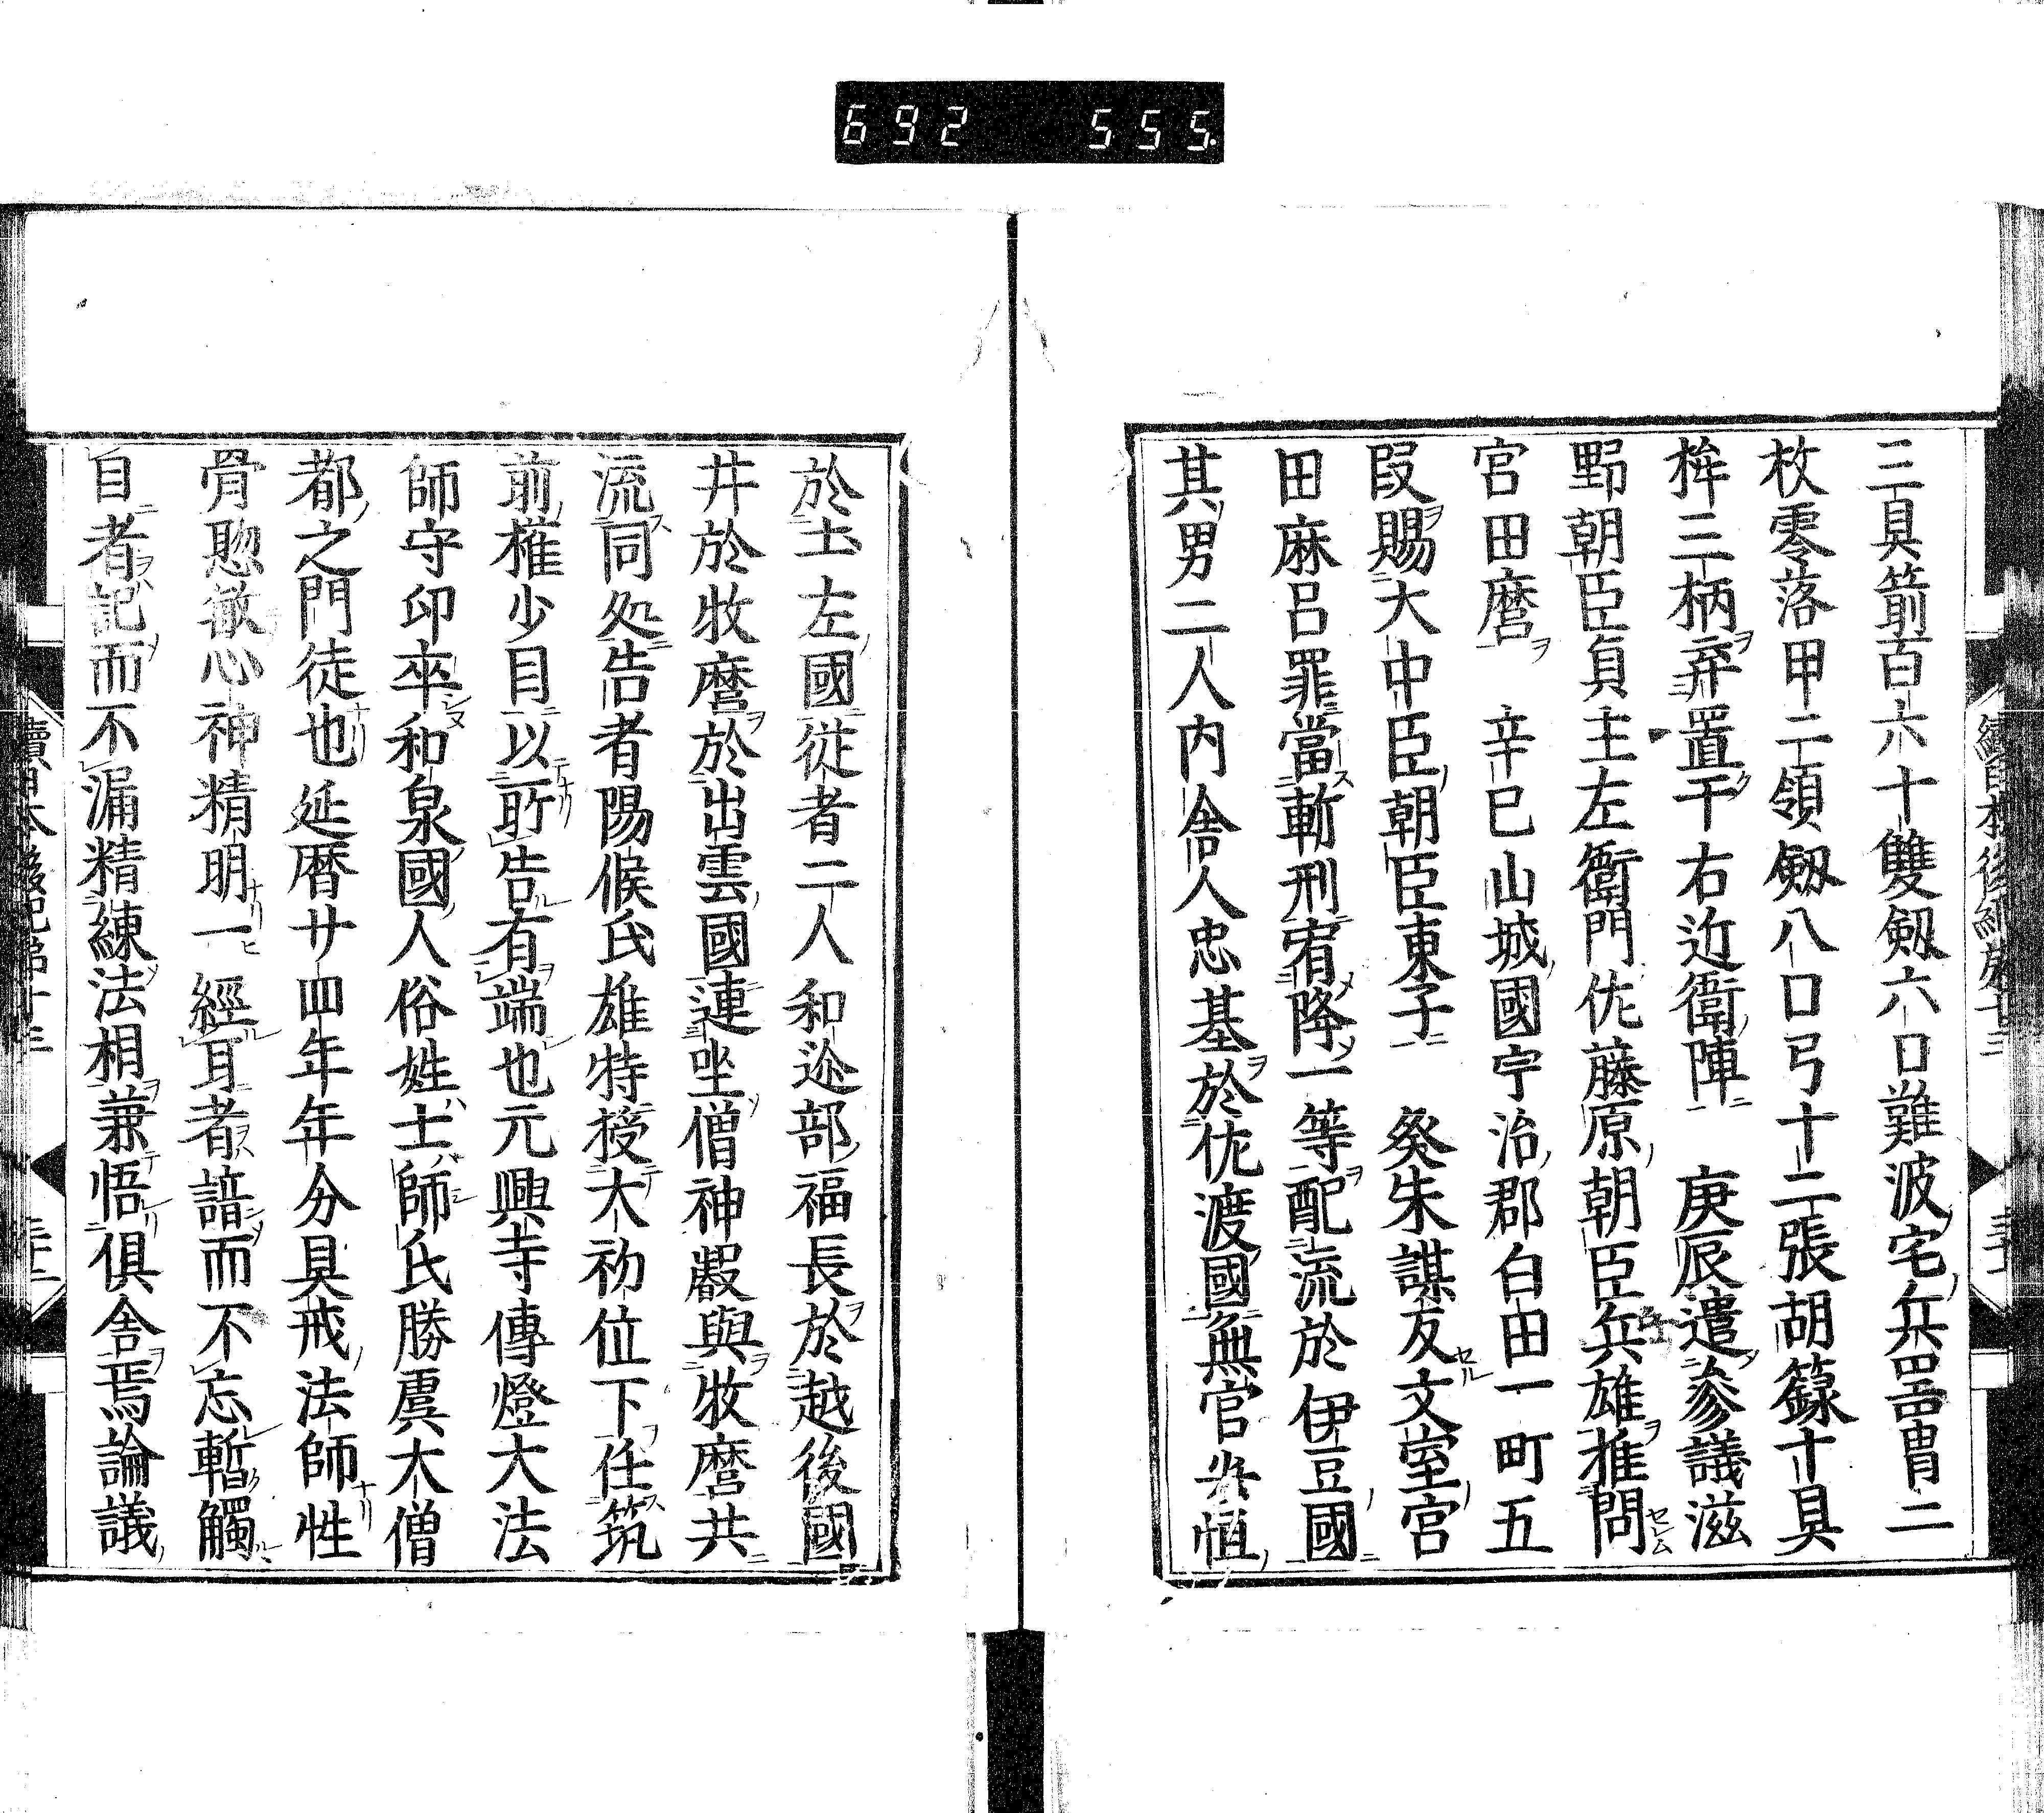 692 555
三具箭百六十雙剱六口難波宅兵噐冑二
枚零落甲二領剱八口弓十二張胡籙十具
桙三柄弃置于右近衛陣 庚辰遣參議滋
野朝臣貞主左衛門佐藤原朝臣兵雄推問
宮田麿 辛巳山城國宇治郡白田一町五
段賜大中臣朝臣東子 癸未謀反文室宮
田麻呂罪當斬刑宥降一等配流於伊豆國
其男二人内舎人忠基於佐渡國無官恒
於土左國從者二人和迩部福長於越後國
井於牧麿於出雲國連坐僧神叡與牧麿共
流同処告者陽候氏雄特授大初位下任筑
前權少目以所告有端也元興寺傳燈大法
師守印卒和泉國人俗姓土師氏勝虞大僧
都之門徒也延暦廿四年年分具戒法師性
骨聡敏心神精明一經耳者諳而不忘暫觸
自者記而不漏精練法相兼悟倶舎焉論議